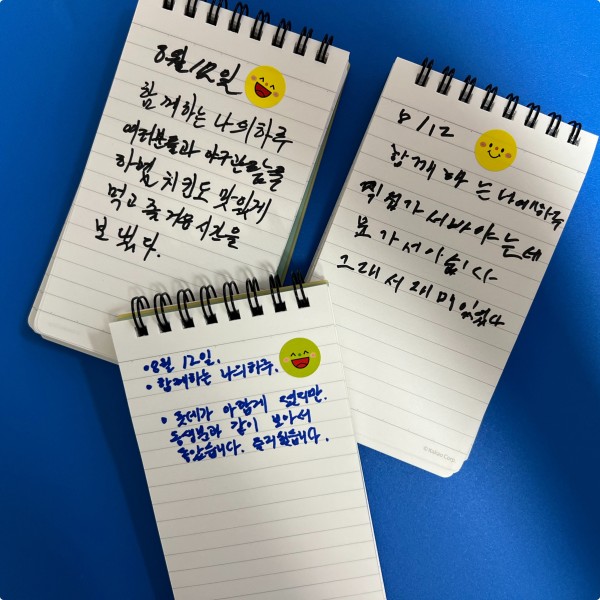 8월 12일
함께하는 나의하루
여러분들과 야구관람을
하며 치킨도 맛있게
먹고 즐거운 시간을
보냈다.
8/12
함께 하는 나에하루
직접가서바야는데
못가서아쉽다
그래서 재미있었다
·8월 12일.
·함께하는 나의하루.
·롯데가 아쉽게 졌지만.
동영분과 같이 보아서
좋았습니다. 즐거웠습니다.
©Kakao Corp.